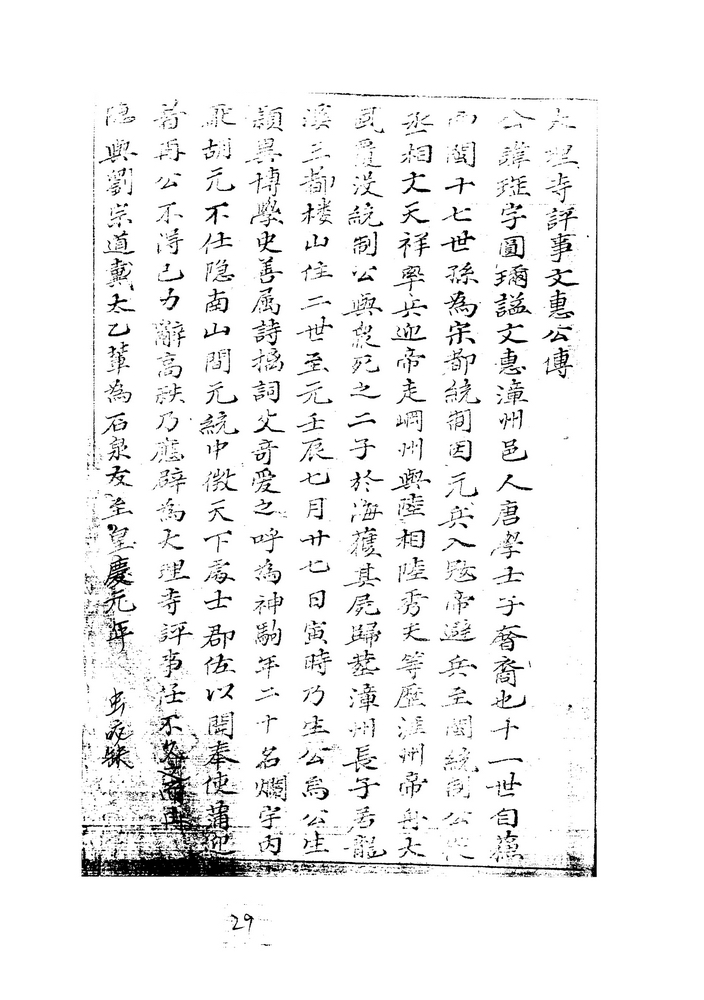 大理寺評事文惠公傳
公諱珽字圓璊謚文惠漳州邑人唐學士子奮裔也十一世自
而閩十七世孫為宋都統制因元兵入寇帝避兵至閩統制公從
丞相文天祥率兵迎帝走崗州與陸相陸秀夫等歷淮州帝舟大
風覆没統制公與從死之二子於海獲其屍歸葬漳州長子居龍
溪三都樓山住二世至元壬辰七月廿七日寅時乃生公焉公生
穎異博學史善属詩摛詞父奇愛之呼為神駒年二十名爛宇内
厭胡元不仕隐南山間元統中徵天下處士郡佐以聞奉使蒲迎
者再公不得已力辭高秩乃應辟為大理寺評事任不
隐與劉宗道戴太乙輩為石泉友至皇慶元年
29